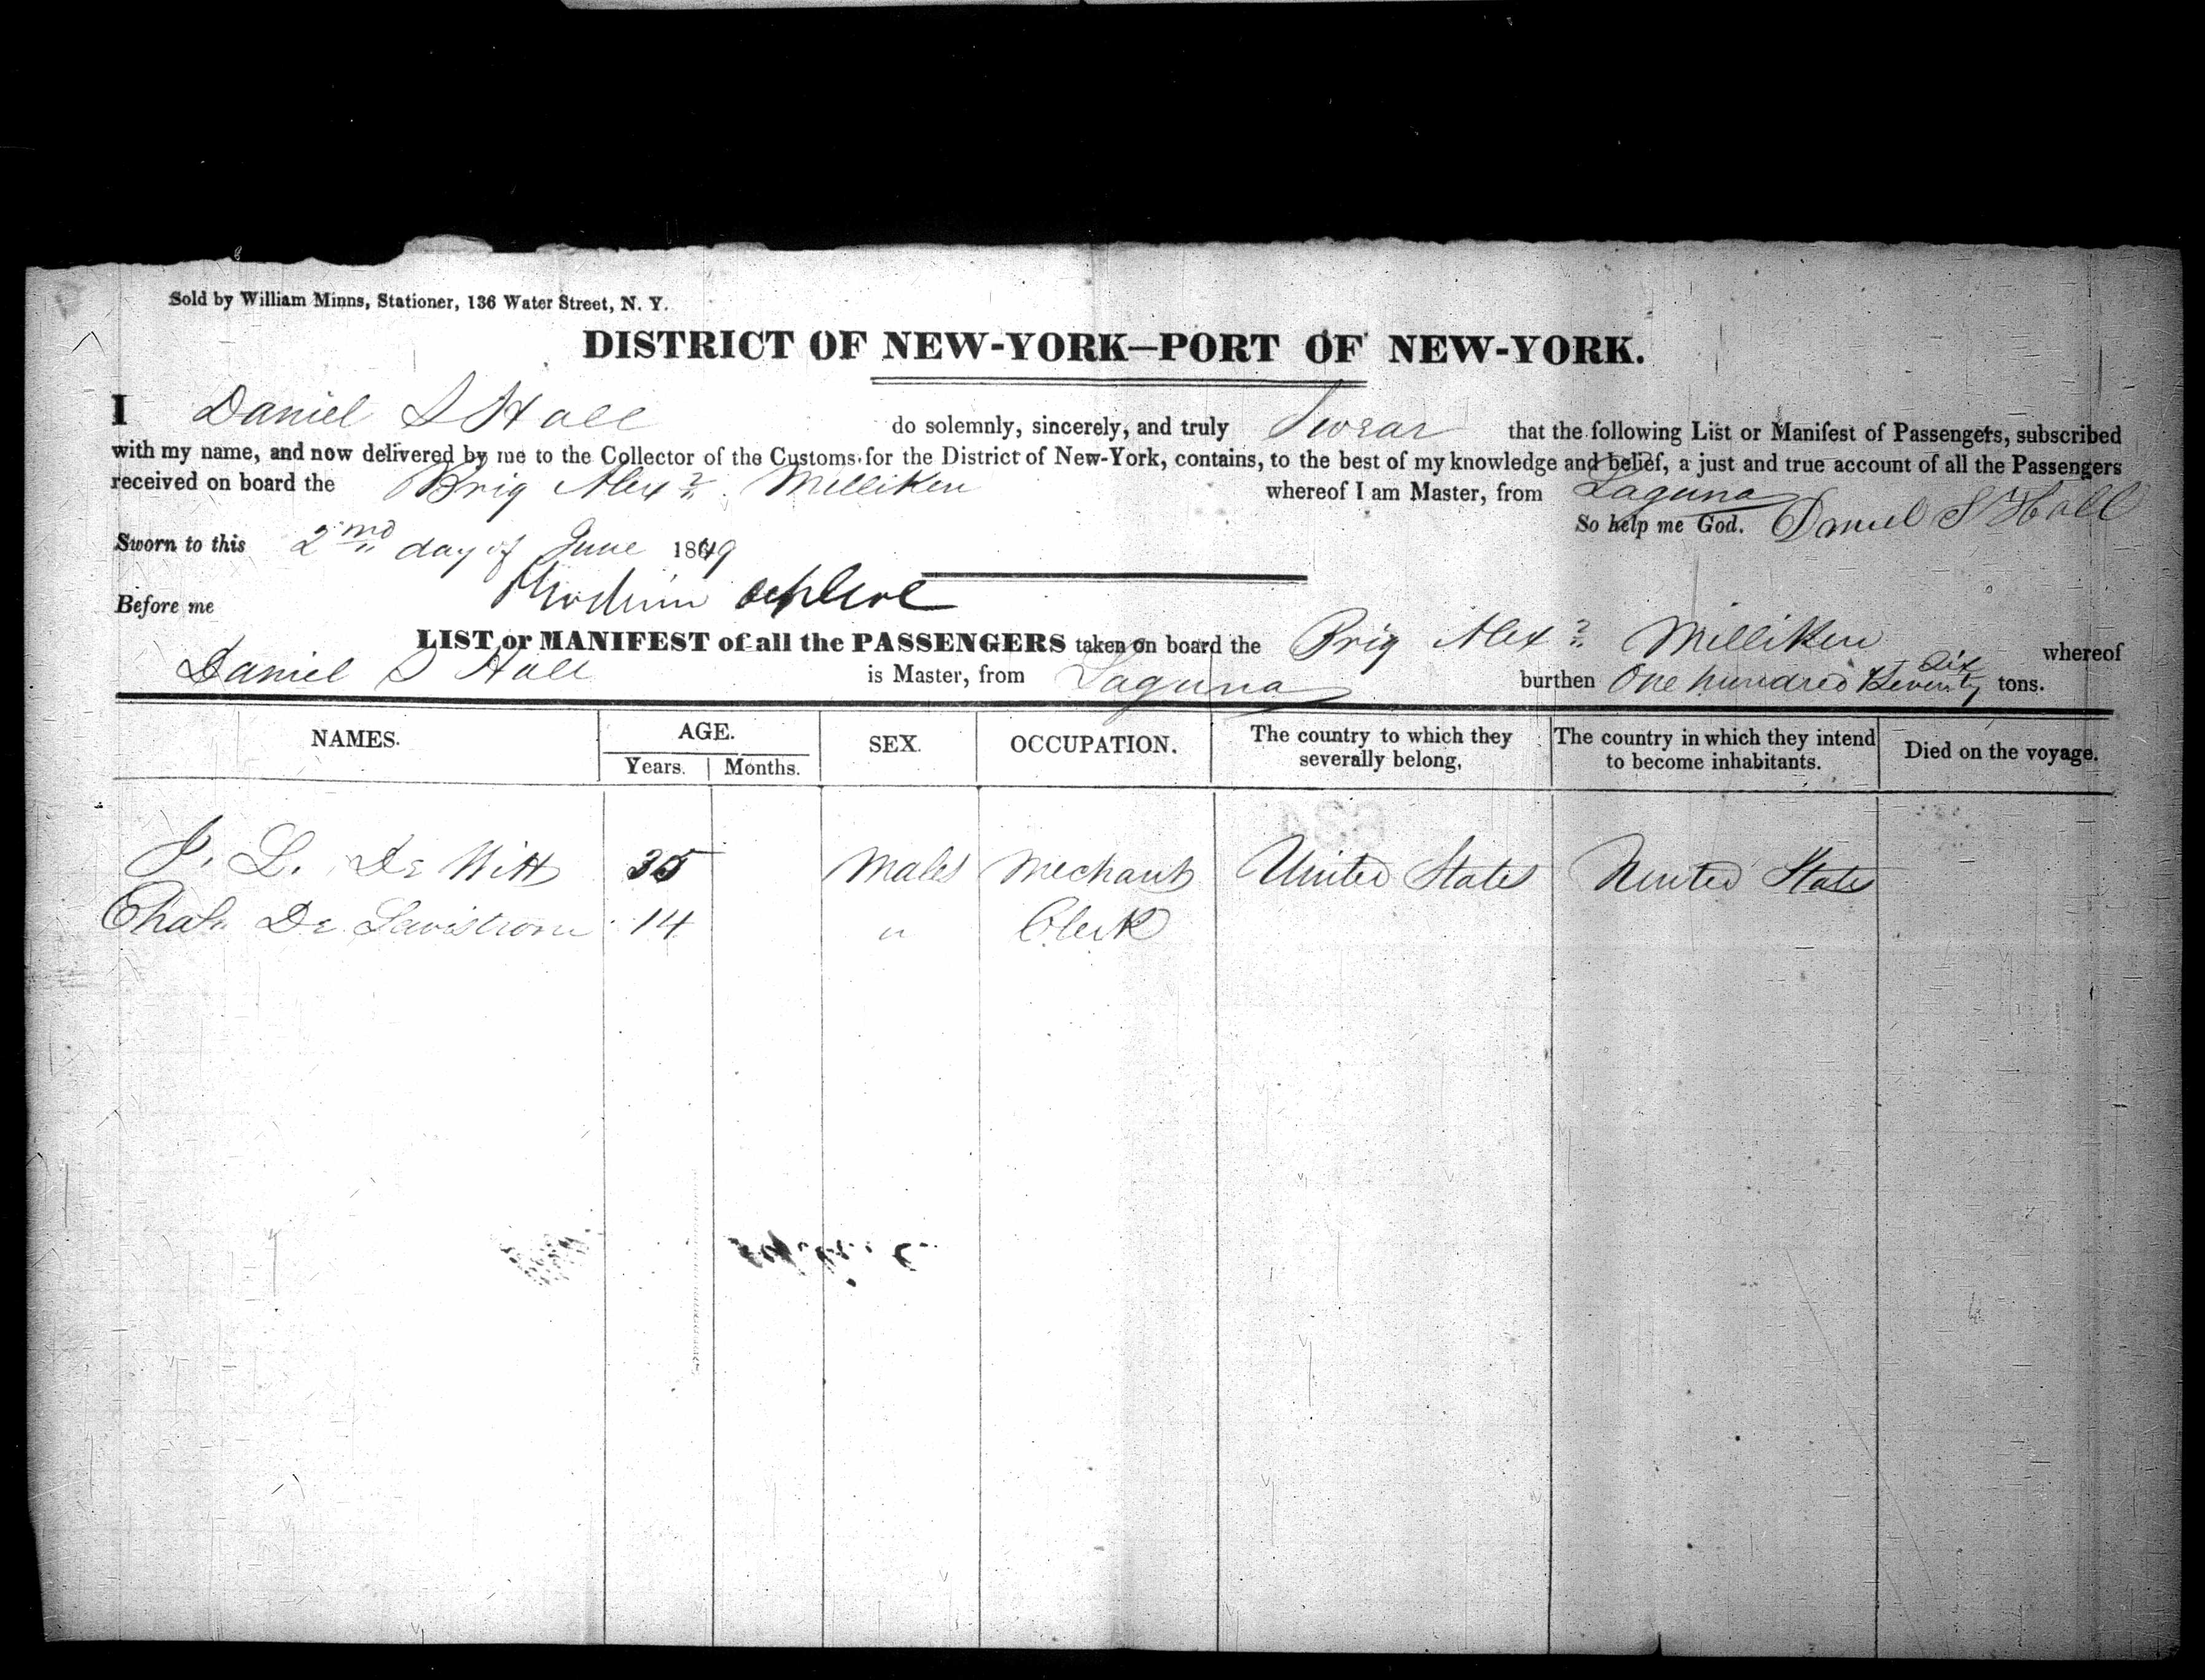 Sold by William Minns, Stationer, 136 Water Street, N. Y.
DISTRICT OF NEW-YORK—PORT OF NEW-YORK.
I Daniel S Hall do solemnly, sincerely, and truly Swear that the following List or Manifest of Passengers, subscribed
with my name, and now delivered by me to the Collector of the Customs for the District of New-York, contains, to the best of my knowledge and belief, a just and true account of all the Passengers
received on board the Brig Alexr. Milliken whereof I am Master, from Laguna
So help me God. Daniel S Hall
Sworn to this 2nd day of June 1849
Before me
LIST or MANIFEST of all the PASSENGERS taken on board the Brig Alexr. Milliken whereof
Daniel S Hall is Master, from Laguna burthen One hundred Seventy Six tons.
NAMES. AGE. SEX. OCCUPATION. The country to which they severally belong, The country in which they intend to become inhabitants. Died on the voyage.
Years. Months.
J. L. De Witt 35 Males Mechant United States United States
Chas. De 14 " Clerk